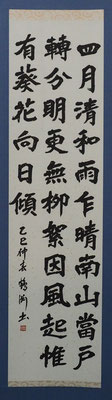 四月清和雨乍晴南山當戶
轉分明更無柳絮因風起惟
有葵花向日傾
仲春 書